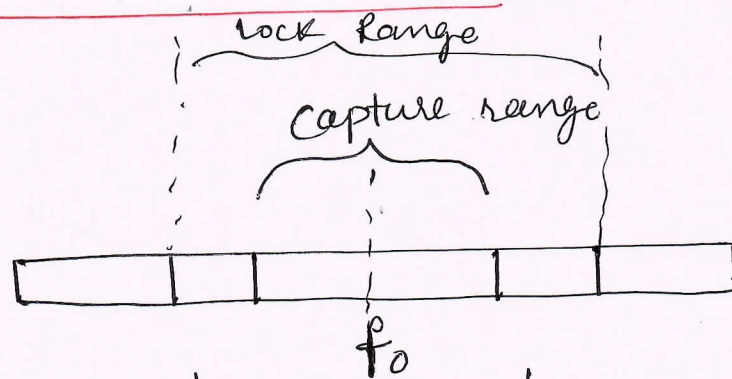 Lock Range
Capture range
f₀